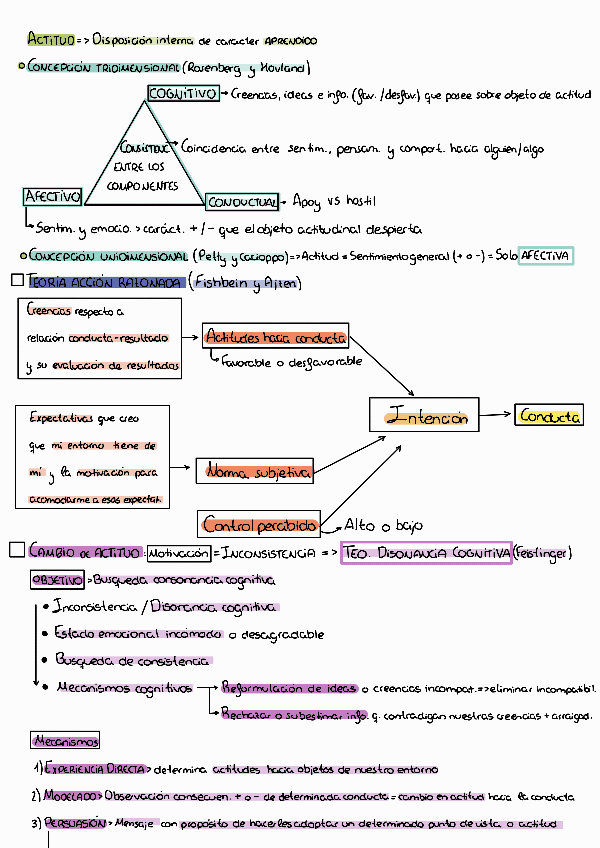 ACTITUD => Disposición interna de caracter APRENDIDO
CONCEPCIÓN TRIDIMENSIONAL (Rosenberg y Hovland)
COGNITIVO → Creencias, ideas e info. (fav. /desfav.) que posee sobre objeto de actitud
CONSISTENC → Coincidencia entre sentim., pensam. y comport. hacia alguien/algo
ENTRE LOS
COMPONENTES
AFECTIVO
CONDUCTUAL → Apoy vs hostil
Sentim. y emocio. > caráct. + / - que el objeto actitudinal despierta
CONCEPCIÓN UNIDIMENSIONAL (Petty y Cacioppo) => Actitud = Sentimiento general (+ o -) = Solo AFECTIVA
TEORÍA ACCIÓN RAZONADA (Fishbein y Ajzen)
Creencias respecto a
relación conducta-resultado
y su evaluación de resultados
Actitudes hacia conducta
Favorable o desfavorable
Intención
Conducta
Expectativas que creo
que mi entorno tiene de
mí y la motivación para
acomodarme a esas expectat.
Norma subjetiva
Control percibido → Alto o bajo
CAMBIO de ACTITUD: Motivación = INCONSISTENCIA => TEO. DISONANCIA COGNITIVA (Festinger)
OBJETIVO > Busqueda consonancia cognitiva
• Inconsistencia / Disonancia cognitiva
• Estado emocional incómodo o desagradable
• Busqueda de consistencia
• Mecanismos cognitivos → Reformulación de ideas o creencias incompat. => eliminar incompatibil.
Rechazar o subestimar info. q. contradigan nuestras creencias + arraigad.
Mecanismos
1) EXPERIENCIA DIRECTA > determina actitudes hacia objetos de nuestro entorno
2) MODELADO > Observación consecuen. + o - de determinada conducta = cambio en actitud hacia la conducta
3) PERSUASIÓN > Mensaje con propósito de hacerles adoptar un determinado punto de vista o actitud